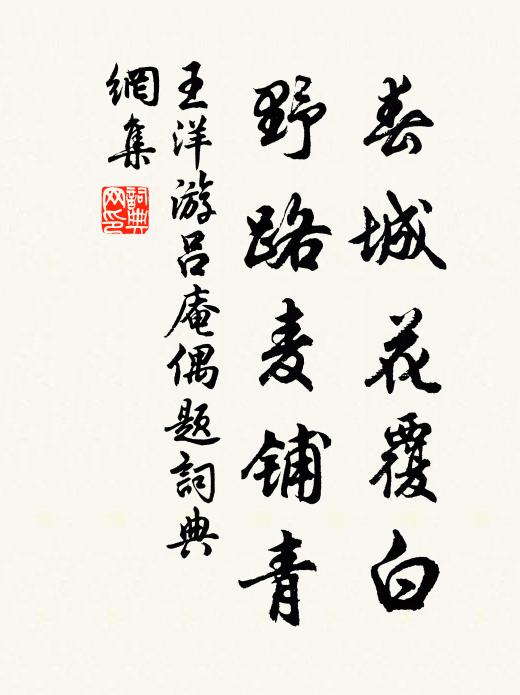 春城花覆白
野路麦铺青
王洋游吕庵偶题詞典
網集
詞典
网印